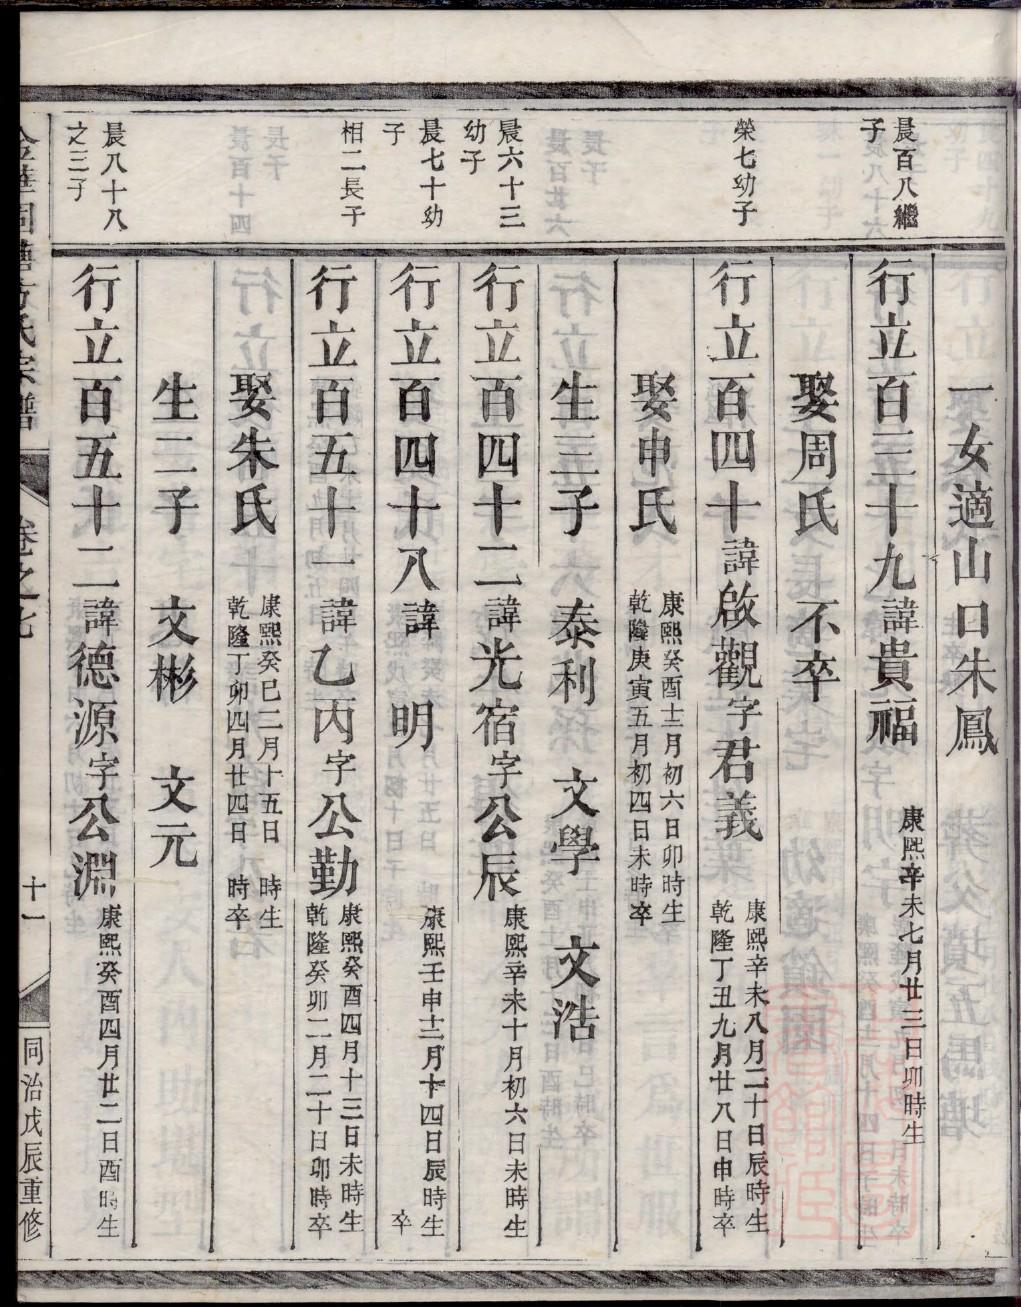 一女適山口朱鳳
晨百八繼子
行立百三十九諱貴福
康熙辛未七月廿三日卯時生
娶周氏 不卒
榮七幼子
行立百四十諱啟觀字君義
康熙辛未八月二十日辰時生
乾隆丁丑九月廿八日申時卒
娶申氏
康熙癸酉十二月初六日卯時生
乾隆庚寅五月初四日未時卒
生三子 泰利 文學 文浩
晨六十三幼子
行立百四十二諱光宿字公辰
康熙辛未十月初六日未時生
晨七十幼子
行立百四十八諱 明
康熙壬申十二月十四日辰時生
卒
相二長子
行立百五十一諱乙丙字公勤
康熙癸酉四月十三日未時生
乾隆癸卯二月二十日卯時卒
娶朱氏
康熙癸巳二月十五日 時生
乾隆辛卯四月廿四日 時卒
生二子 文彬 文元
晨八十八之三子
行立百五十二諱德源字公淵
康熙癸酉四月廿二日酉時生
氏宗譜
卷之七
十一
同治戊辰重修